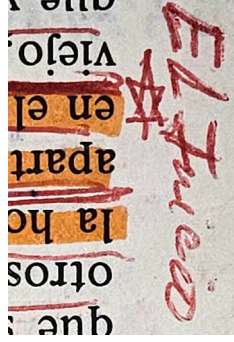 que
otros
la ho
apart
en el
viejo,
que
EL